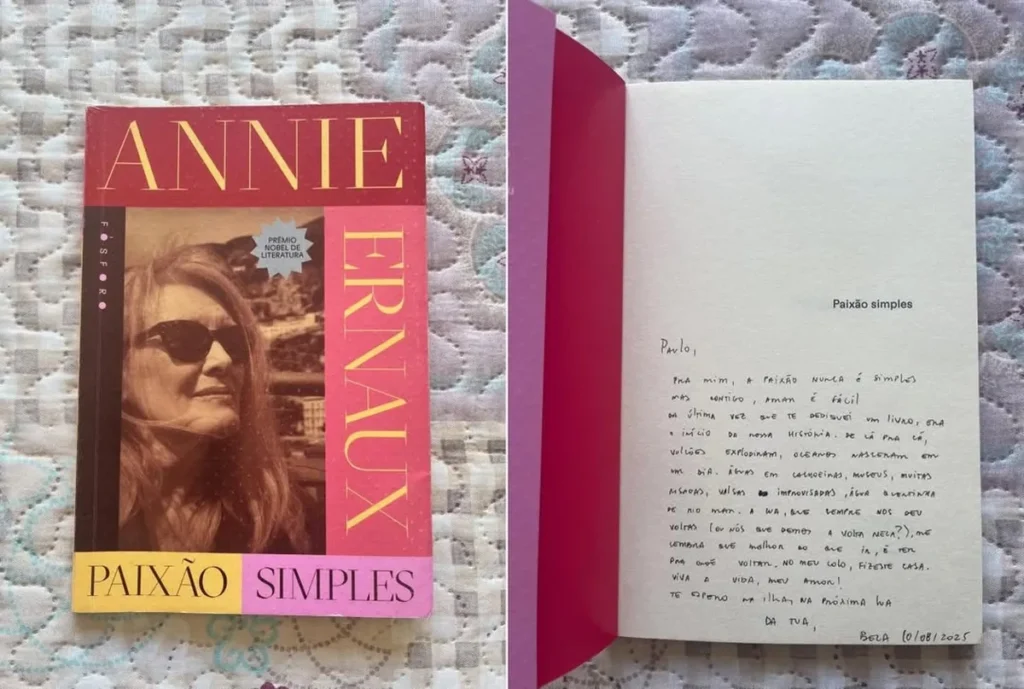 ANNIE
ERNAUX
FÓSFORO
PRÊMIO
NOBEL DE
LITERATURA
PAIXÃO SIMPLES
Paixão simples
Paulo,
PRA MIM, A PAIXÃO NUNCA É SIMPLES
MAS CONTIGO, AMAR É FÁCIL
DA ÚLTIMA VEZ QUE TE DEDIQUEI UM LIVRO, ERA
O INÍCIO DA NOSSA HISTÓRIA. DE LÁ PRA CÁ,
VULCÕES EXPLODIRAM, OCEANOS NASCERAM EM
UM DIA. ÁGUAS EM CACHOEIRAS, MUSEUS, MUITAS
RISADAS, VALSAS IMPROVISADAS, ÁGUA QUENTINHA
DE RIO MAR. A LUA, QUE SEMPRE NOS DEU
VOLTAS (OU NÓS QUE DEMOS A VOLTA NELA?), ME
LEMBRA QUE MELHOR DO QUE IR, É TER
PRA ONDE VOLTAR. NO MEU COLO, FIZESTE CASA.
VIVA A VIDA, MEU AMOR!
TE ESPERO NA ILHA, NA PRÓXIMA LUA
DA TUA,
BELA 10/08/2025